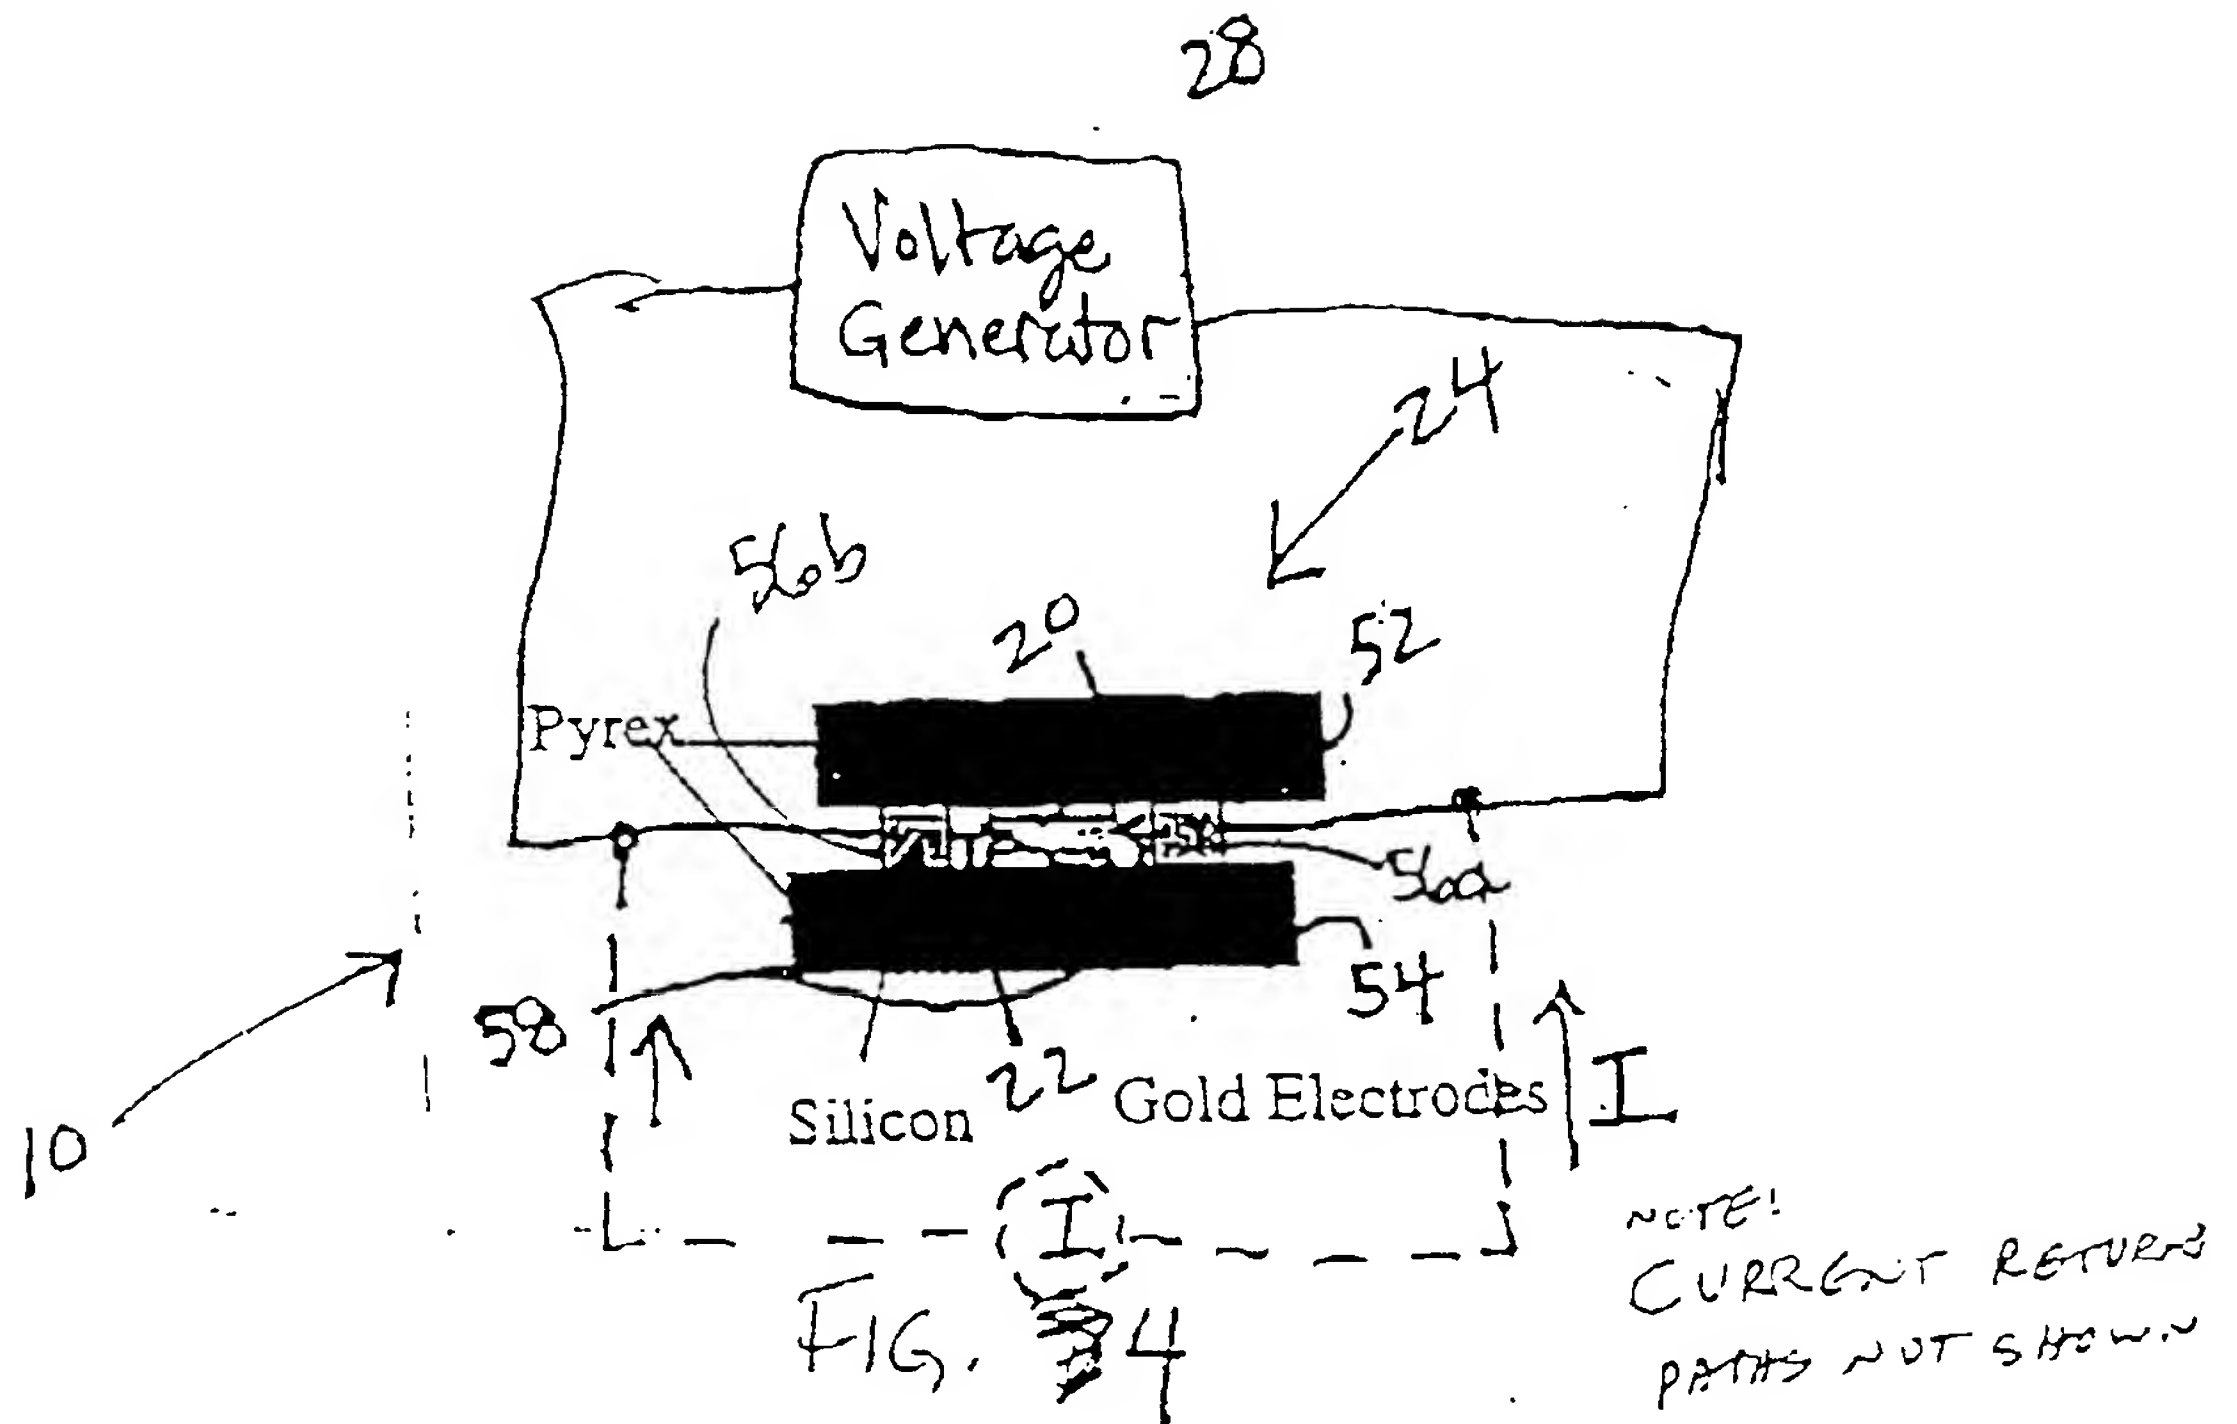 28
Voltage
Generator
24
56b
20
52
Pyrex
56a
54
58
22
Silicon
Gold Electrodes
I
10
I
NOTE!
CURRENT RETURN
PATHS NOT SHOWN
FIG. 4